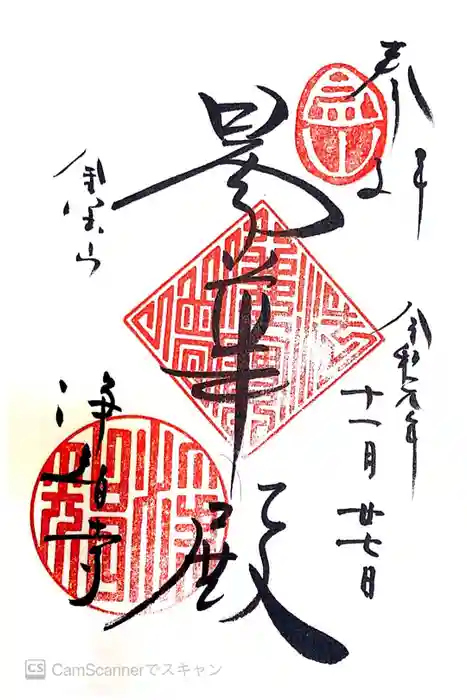 奉拝
令和元年
十一月廿七日
曇華殿
金宝山
浄智寺
CS CamScannerでスキャン